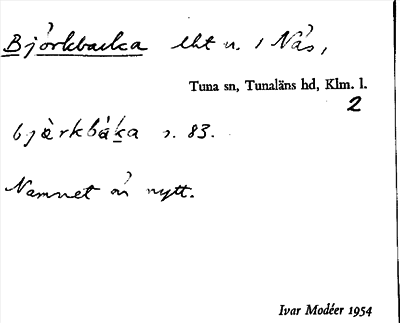 Björkbacka lht u. / Nås,
Tuna sn, Tunaläns hd, Klm. l.
2
bjàrkbáka s. 83.
Namnet är nytt.
Ivar Modéer 1954